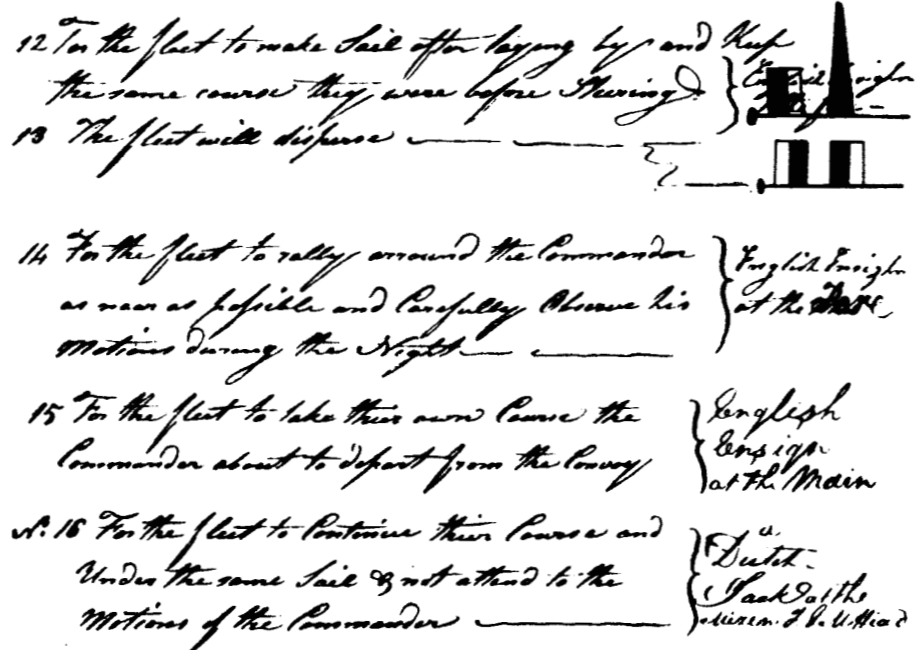 12 For the fleet to make Sail after laying by and Keep
the same course they were before Steering
13 The fleet will disperse
14 For the fleet to rally arround the Commander
as near as possible and Carefully Observe his
Motions during the Night
English Ensign
at the
15 For the fleet to take their own Course the
Commander about to depart from the Convoy
English
Ensign
at the Main
No. 16 For the fleet to Continue their Course and
Under the same Sail & not attend to the
Motions of the Commander
a
Dutch
Jack at the
Mizen Head